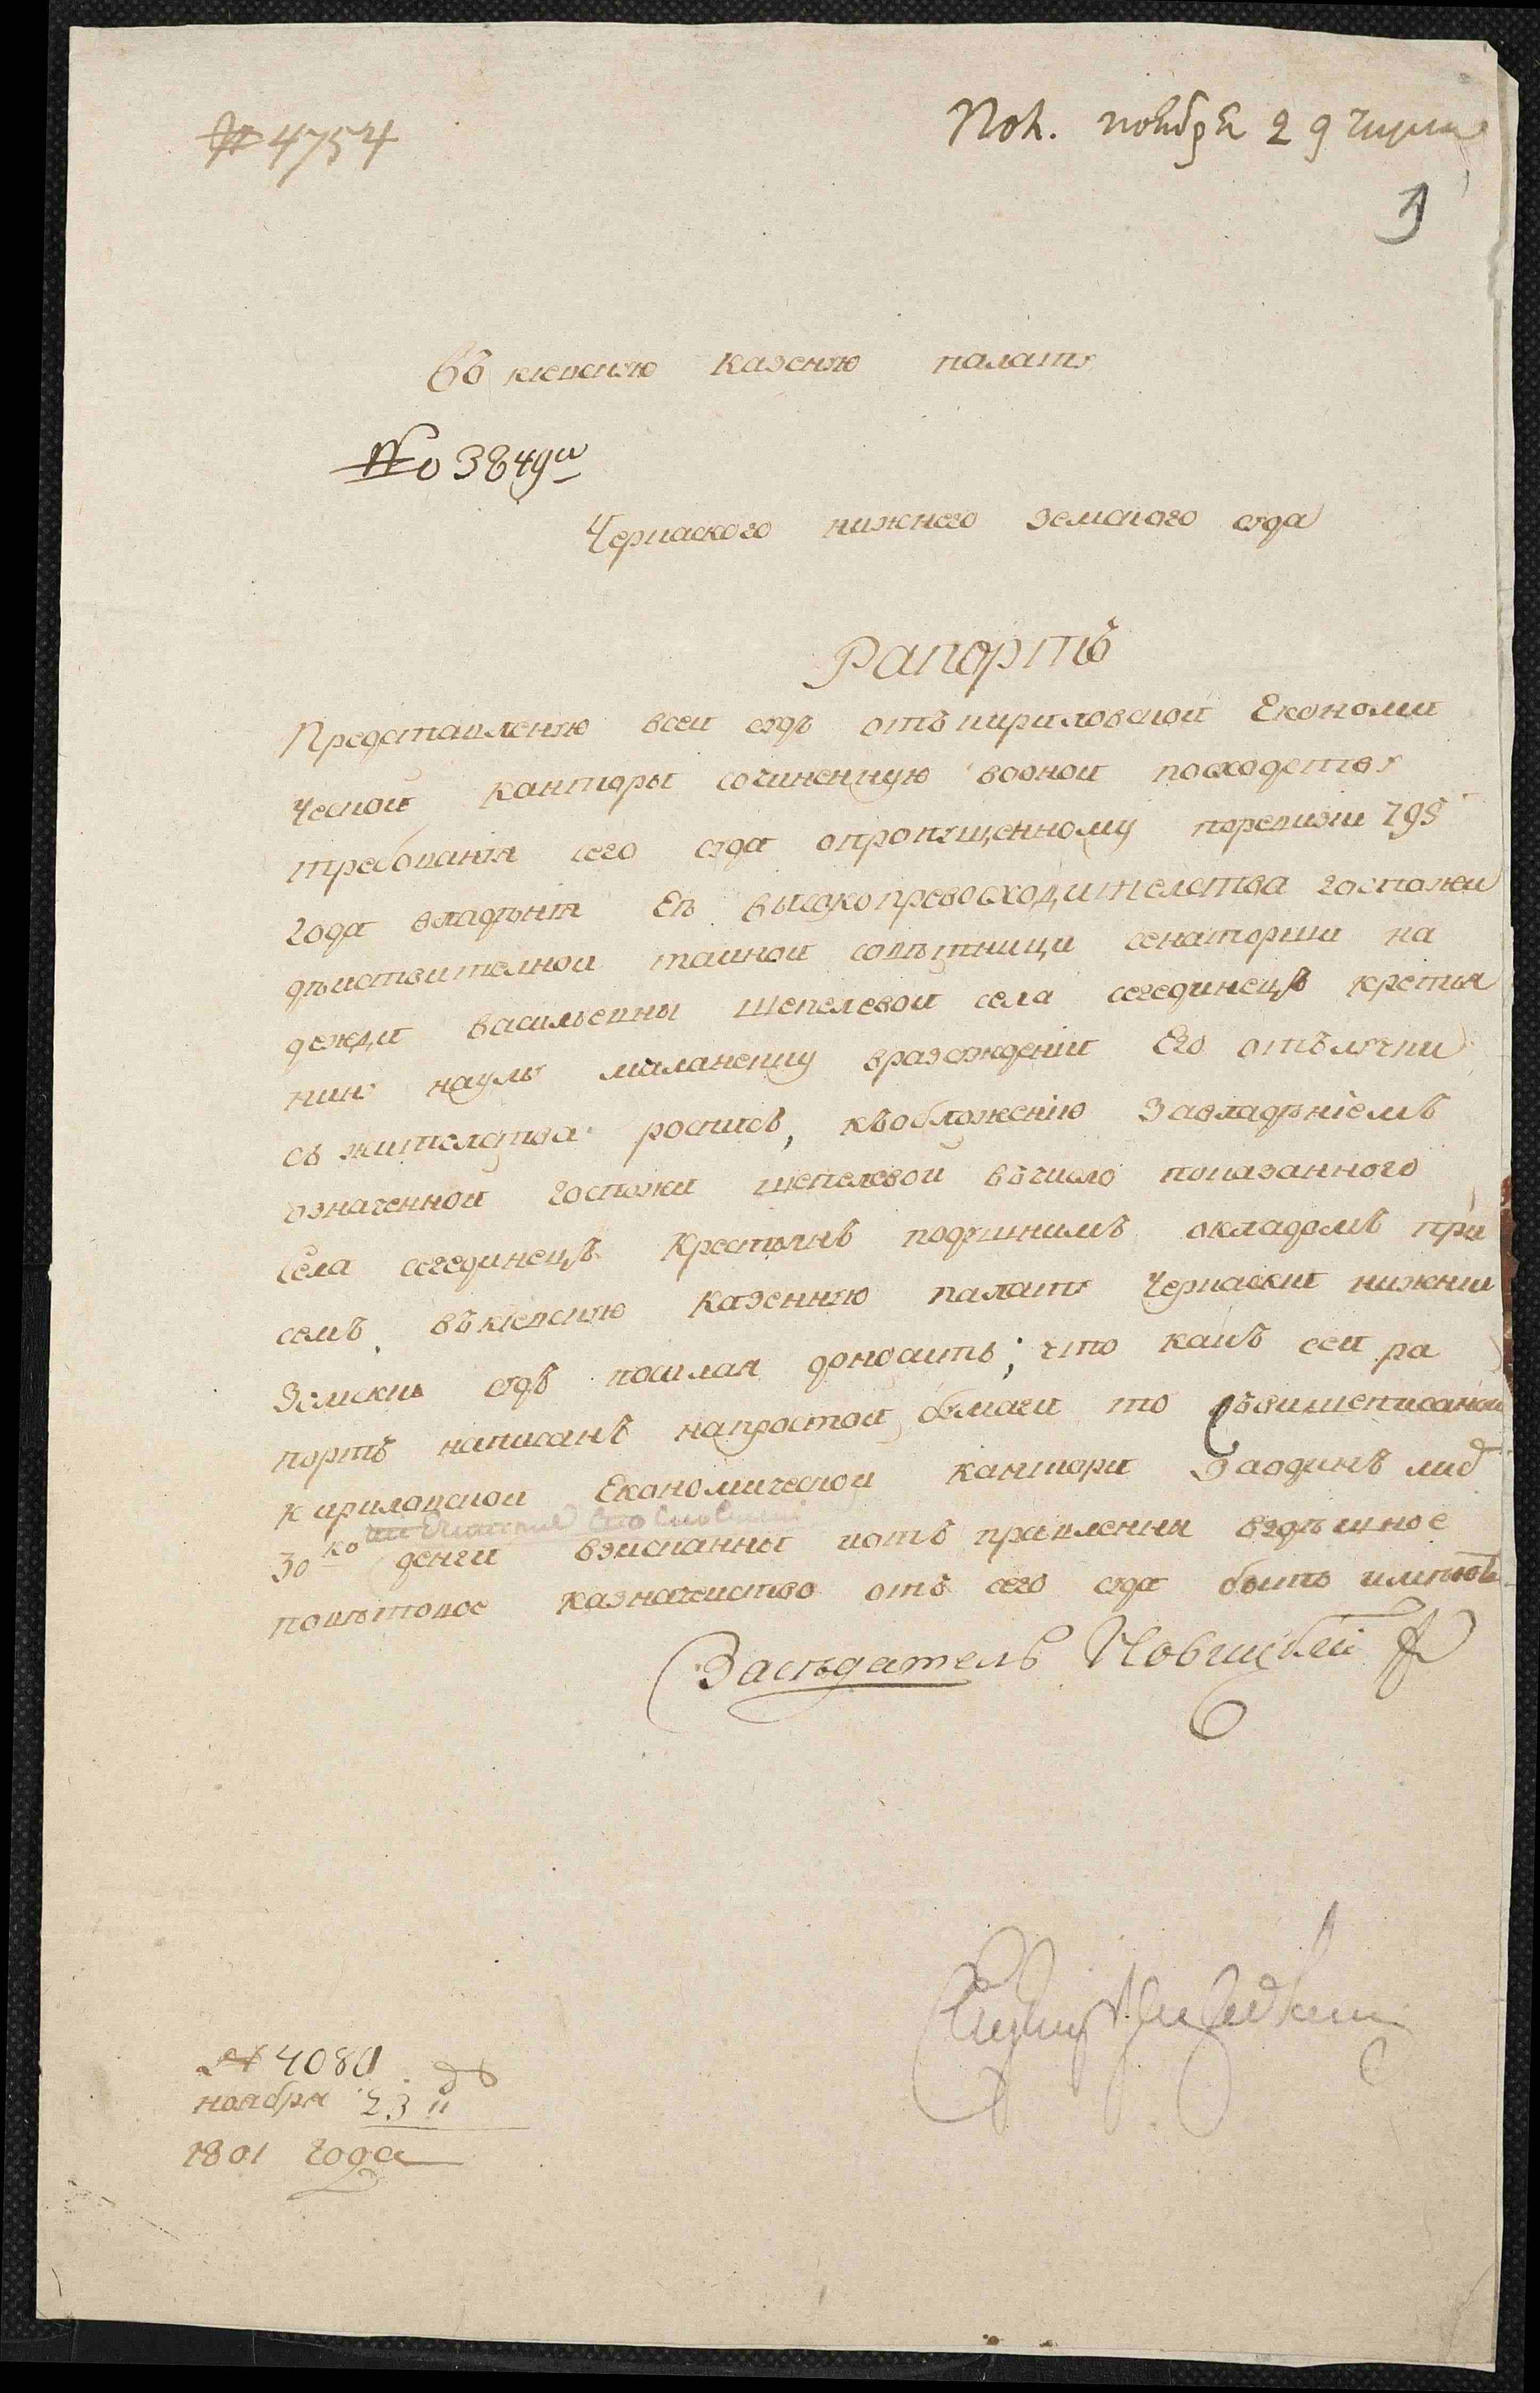 № 4754
Пол. ноября 29 числа
3
Въ киевскую казенную палату
№о 3849и
Черкаского нижнего земского суда
Рапортъ
Представленную всеи судъ отъ кириловской Економи
ческой канторы сочиненную воной посходству
требования сего суда опропущенному поревизии 795
года владѣния Еѣ высокопревосходителства госпожи
дѣиствителной тайной совѣтници сенаторши на
дежди васильевны шепелевой села сегединецъ крестья
нину науму маланенку вразсуждении Его отълучки
съ жителства роспись, къобложению завладѣниемъ
означенной госпожи шепелевой въчисло показанного
Села сегединецъ крестьянъ подушнимъ окладомъ при
семъ въкиевскую казенную палату Черкаский нижний
Земский судъ посилая доносить; что какъ сей ра
портъ написанъ напростой бумаги то съвишеписаной
кириловской Економической канторы Заодинъ лис
30 ко денги взисканны иотъ правленны вздѣшное
повѣтовое казначейство отъ сего суда быть имѣютъ
Засѣдатель Новицкий
№ 4080
ноября 23 д
1801 года